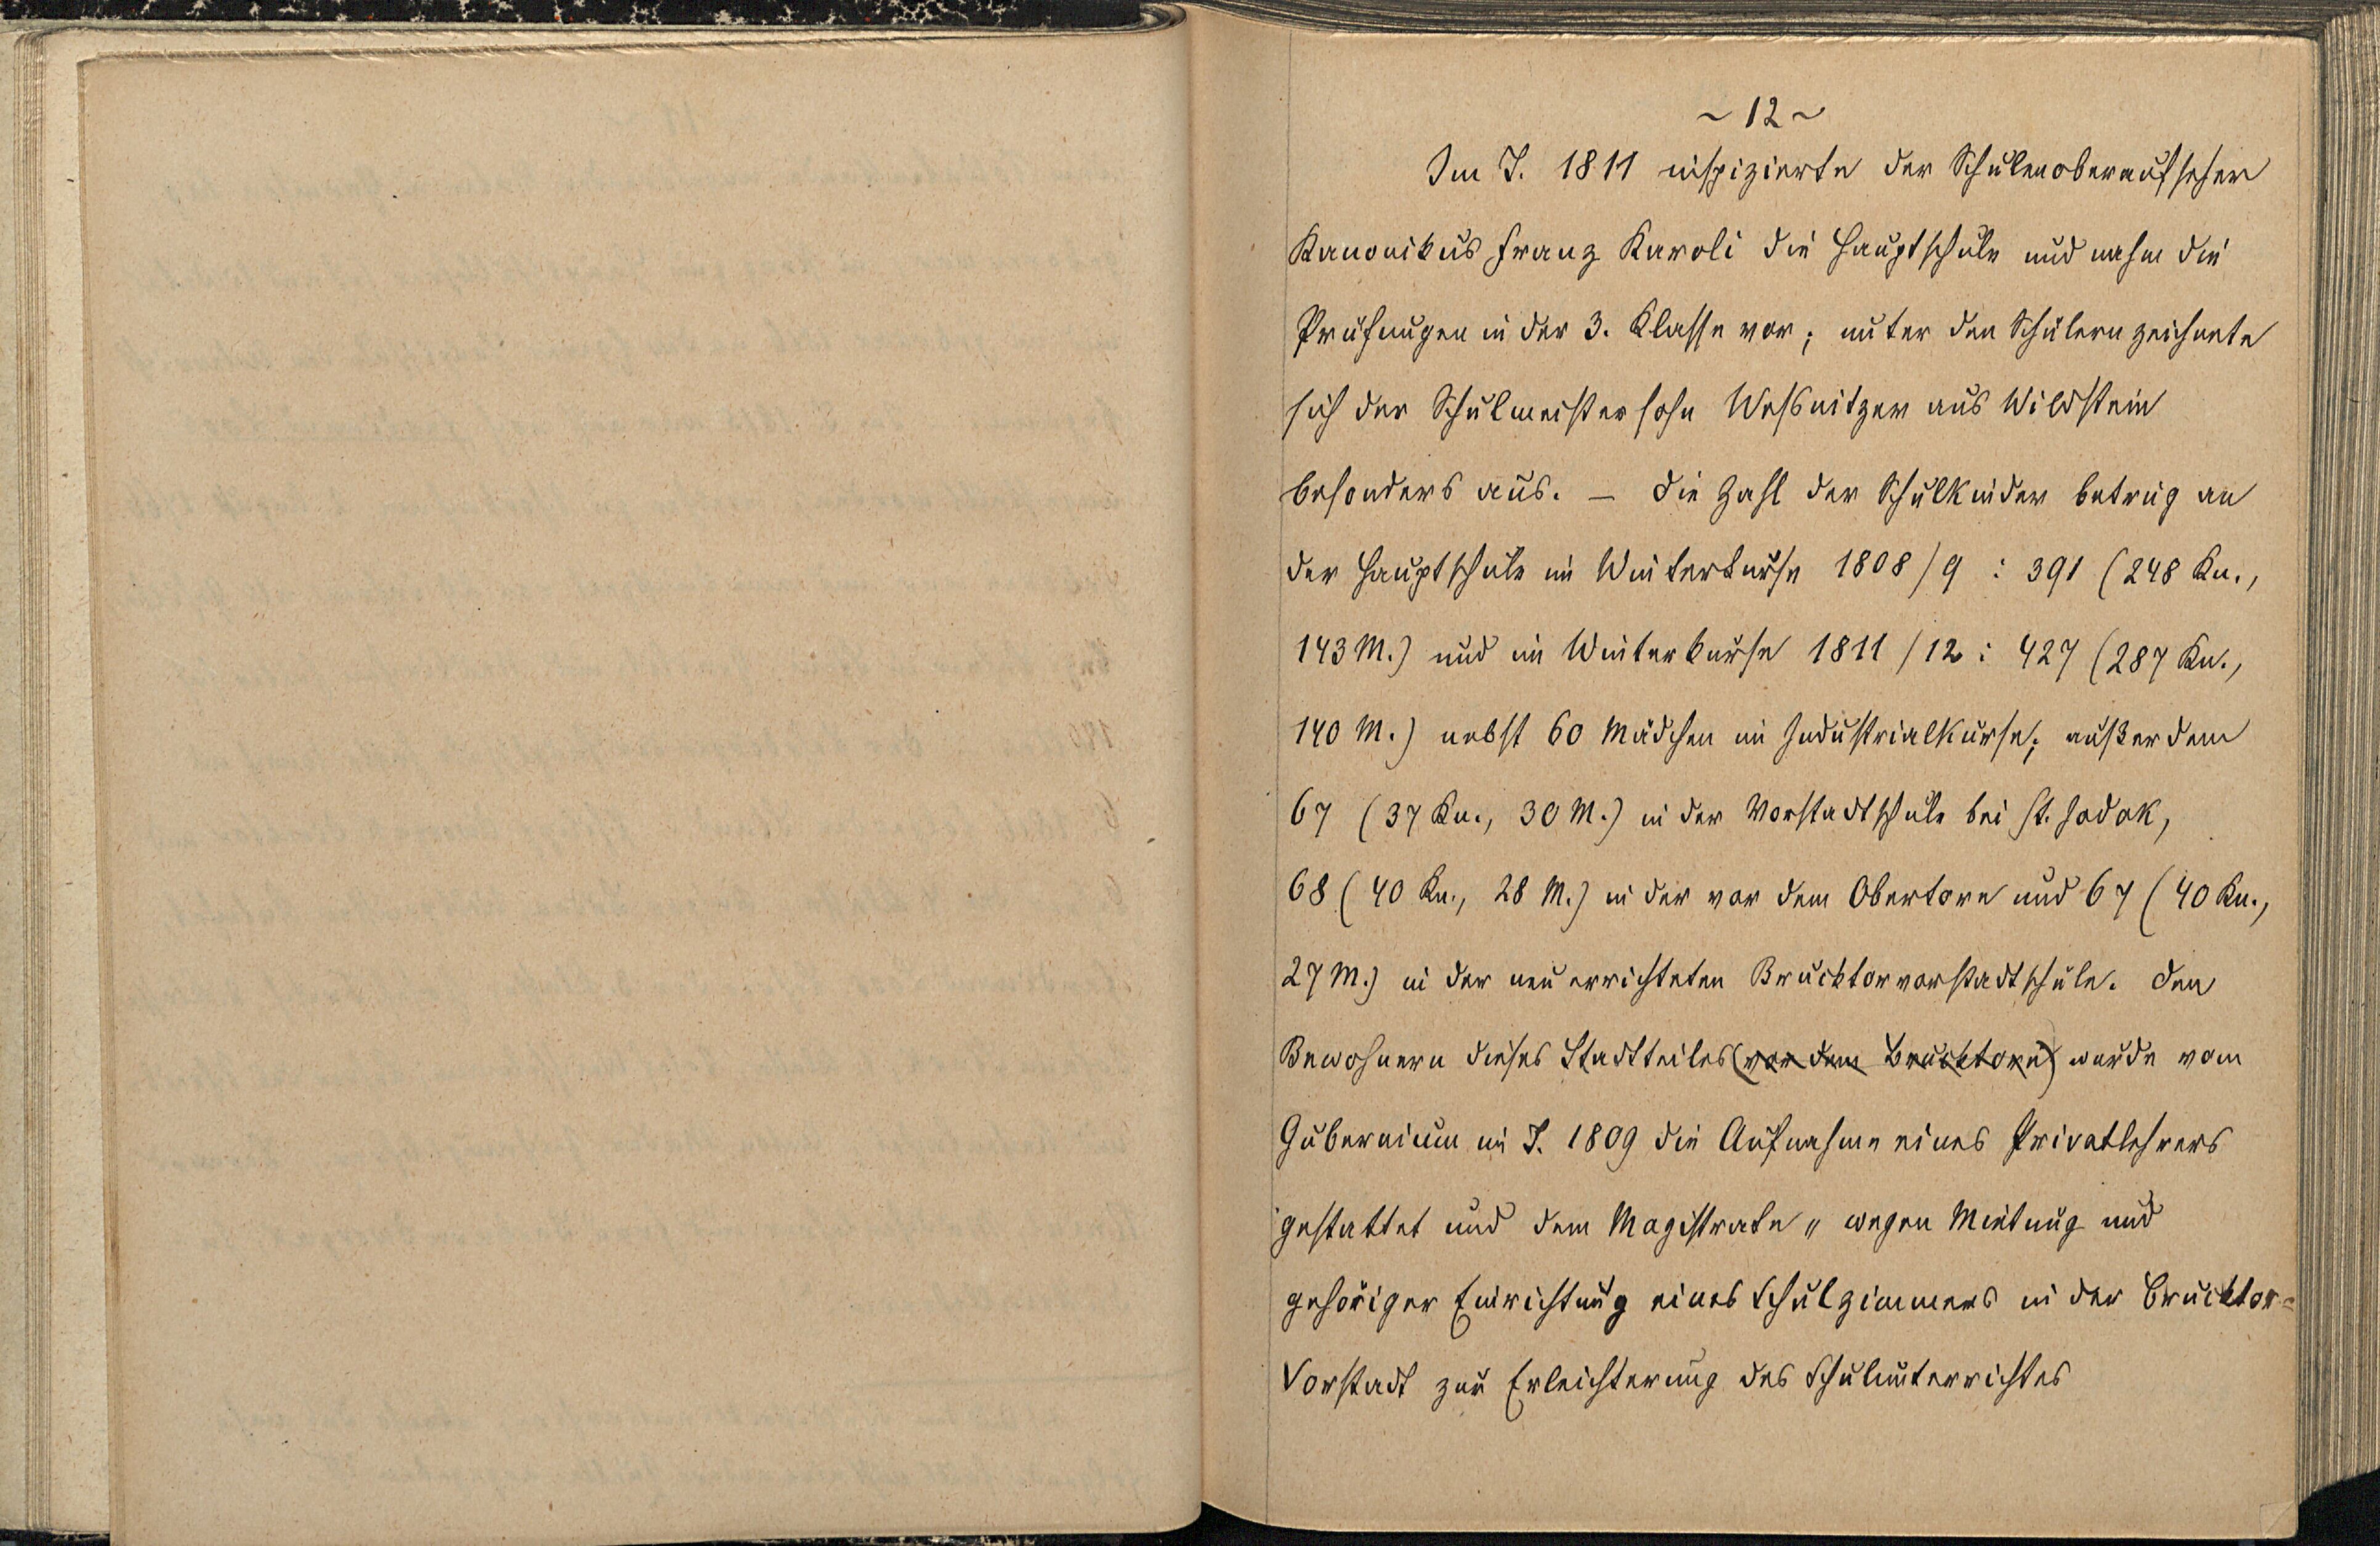 ~ 12 ~
Im J. 1811 inspizierte der Schulenoberaufseher
Kanonikus Franz Karoli die Hauptschule und nahm die
Prüfungen in der 3. Klasse vor; unter den Schülern zeichnete
sich der Schulmeistersohn Weßnitzer aus Wildstein
besonders aus. – Die Zahl der Schulkinder betrug an
der Hauptschule im Winterkurse 1808/9 : 391 (248 Kn.,
143 M.) und im Winterkurse 1811/12 : 427 (287 Kn.,
140 M.) nebst 60 Mädchen im Industrialkurse; außerdem
67 (37 Kn., 30 M.) in der Vorstadtschule bei St. Jodok,
68 (40 Kn., 28 M.) in der vor dem Obertore und 67 (40 Kn.,
27 M.) in der neu errichteten Brucktorvorstadtschule. Den
Bewohnern dieses Stadtteiles (vor dem Brucktore) wurde vom
Gubernium im J. 1809 die Aufnahme eines Privatlehrers
gestattet und dem Magistrate „wegen Mietung und
gehöriger Einrichtung eines Schulzimmers in der Brucktor=
Vorstadt zur Erleichterung des Schulunterrichtes